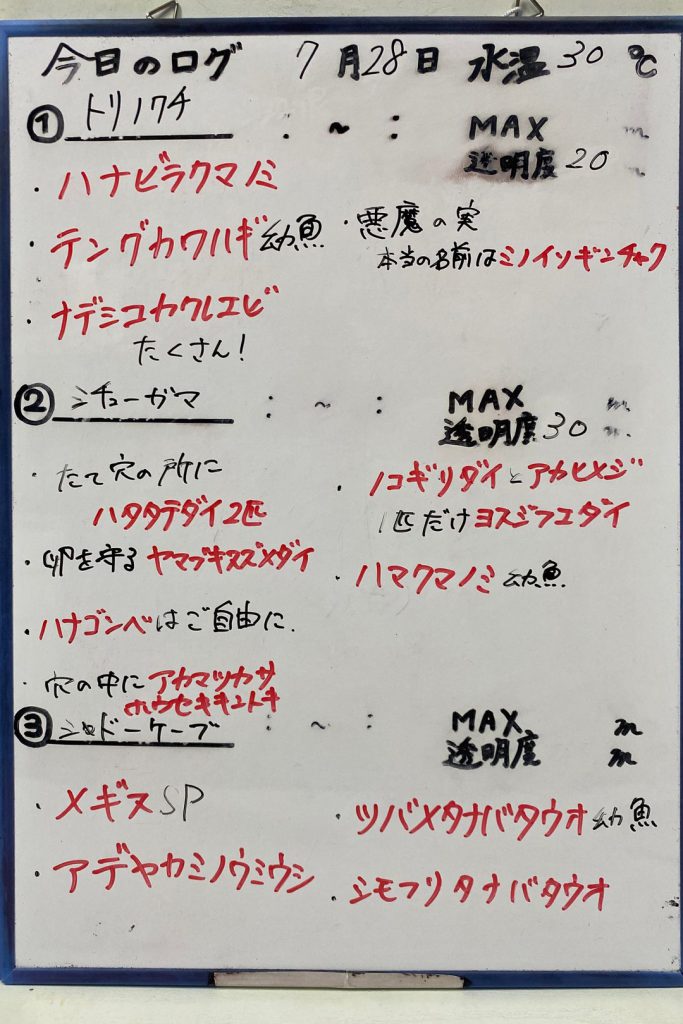 今日のログ 7月28日 水温30℃
① トリノクチ : ~ : MAX m
透明度20 m
・ハナビラクマノミ
・テングカワハギ幼魚
・悪魔の実
本当の名前はミノイソギンチャク
・ナデシコカクレエビ
たくさん!
② ミチューガマ : ~ : MAX m
透明度30 m
・たて穴の所に
ハタタテダイ2匹
・卵を守るヤマブキスズメダイ
・ハナゴンベはご自由に.
・穴の中にアカマツカサ
ホウセキキントキ
・ノコギリダイとアカヒメジ
1匹だけヨスジフエダイ
・ハマクマノミ幼魚
③ シャドーケーブ : ~ : MAX m
透明度 m
・メギスSP
・アデヤカミノウミウシ
・ツバメタナバタウオ幼魚
・シモフリタナバタウオ